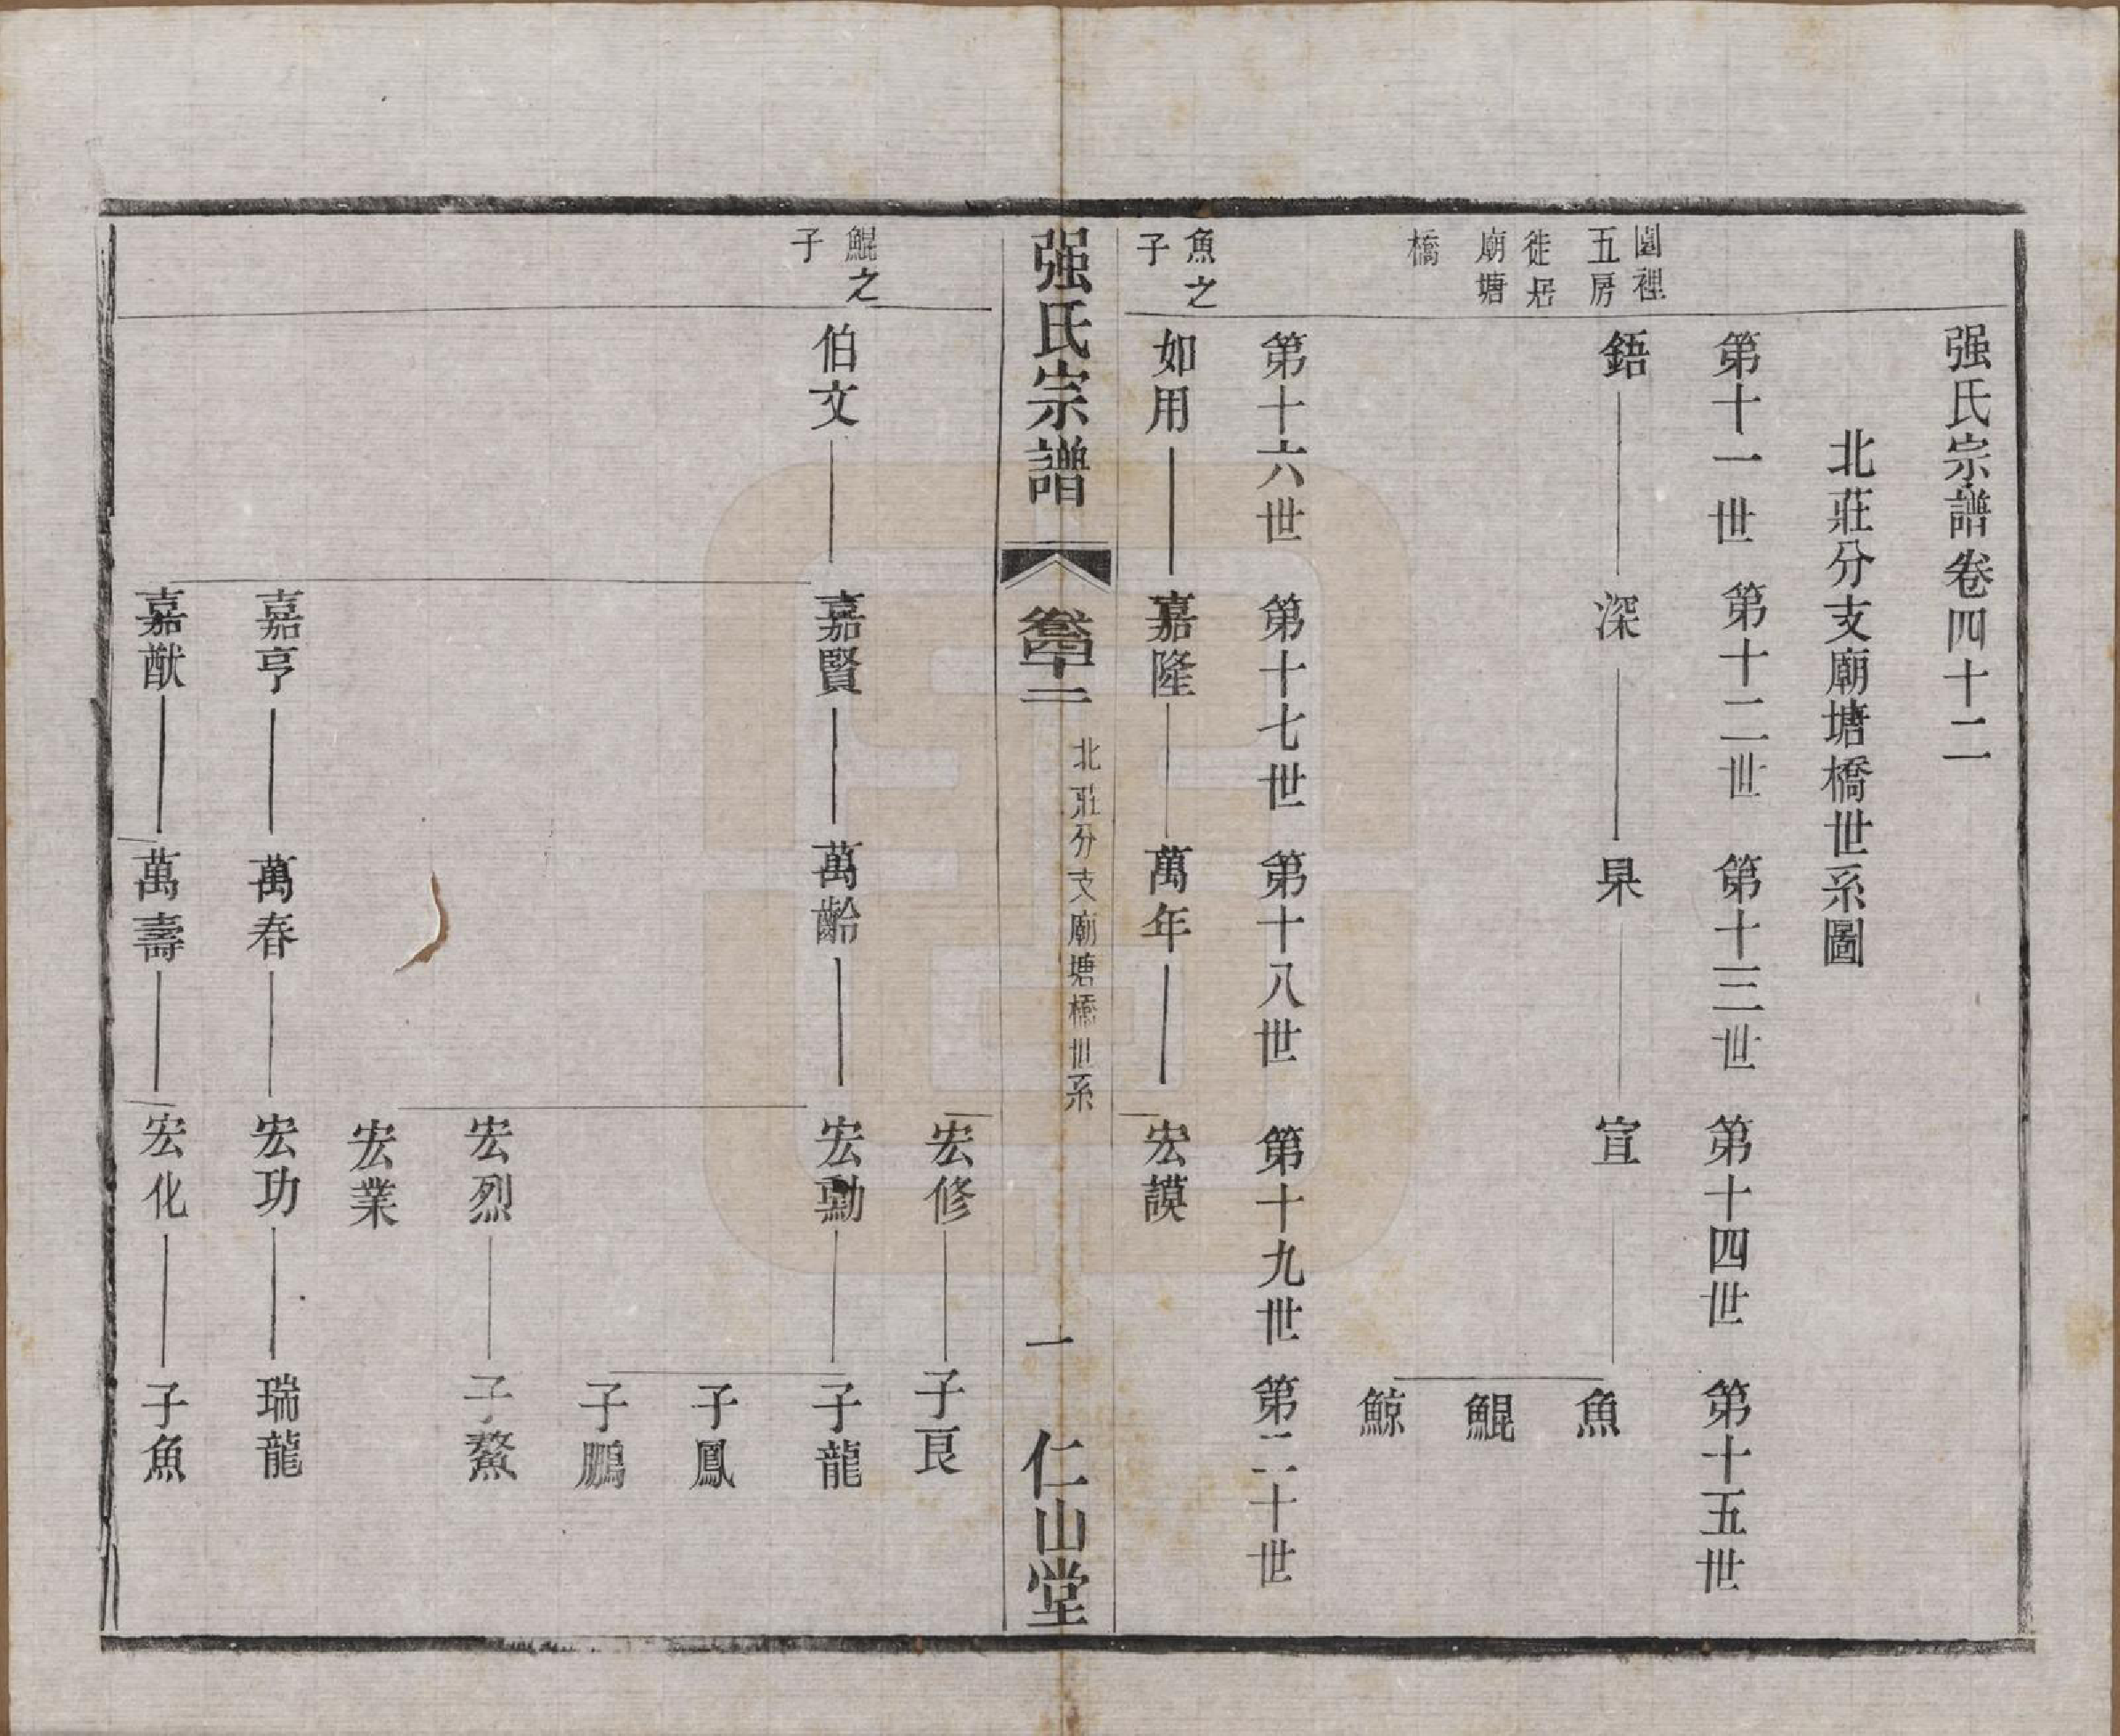 强氏宗譜卷四十二
北莊分支廟塘橋世系圖
第十一世 第十二世 第十三世 第十四世 第十五世
園裡
五房
徙居
廟塘
橋
鋙 深 杲 宣 魚
鯤
鯨
第十六世 第十七世 第十八世 第十九世 第二十世
魚之
子
如用 嘉隆 萬年 宏謨
强氏宗譜 卷四十二 北莊分支廟塘橋世系 一 仁山堂
宏修 子良
鯤之
子
伯文 嘉賢 萬齡 宏勳 子龍
子鳳
子鵬
宏烈 子鰲
宏業
嘉亨 萬春 宏功 瑞龍
嘉猷 萬壽 宏化 子魚